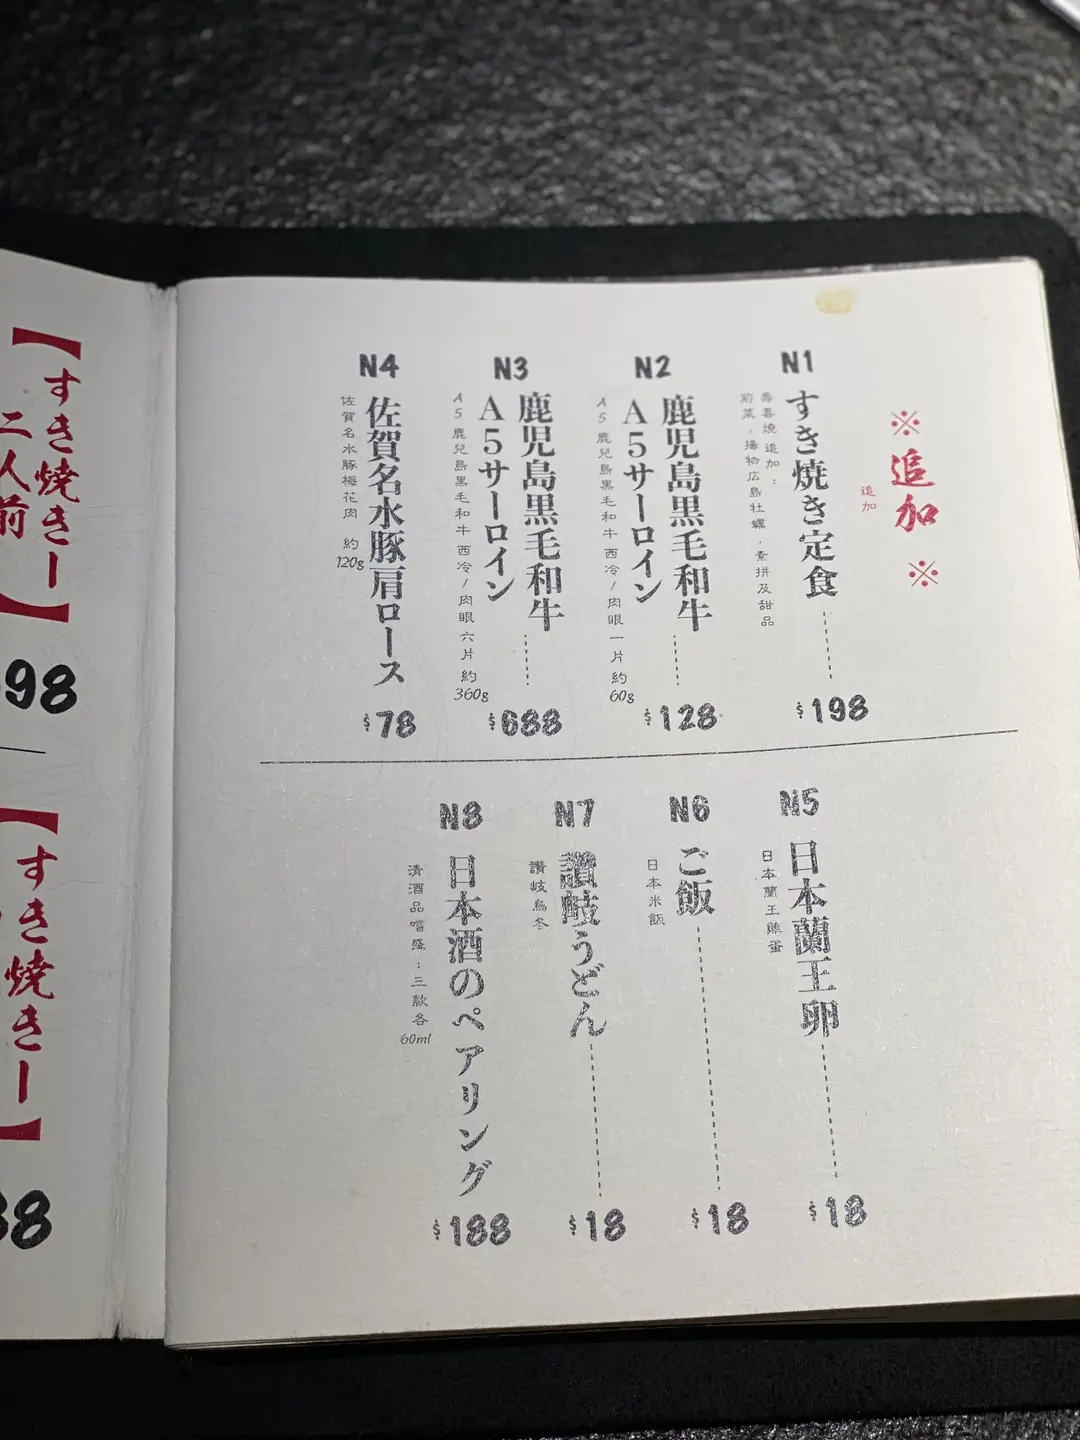 ※追加※
追加
N1
すき焼き定食
壽喜燒 追加：
前菜，揚物広島牡蠣，素拼及甜品
$198
N2
鹿児島黒毛和牛
A5サーロイン
A5 鹿兒島黑毛和牛 西冷/肉眼 一片 約60g
$128
N3
鹿児島黒毛和牛
A5サーロイン
A5 鹿兒島黑毛和牛 西冷/肉眼 六片 約360g
$688
N4
佐賀名水豚肩ロース
佐賀名水豚梅花肉 約120g
$78
N5
日本蘭王卵
日本蘭王雞蛋
$18
N6
ご飯
日本米飯
$18
N7
讃岐うどん
讚岐烏冬
$18
N8
日本酒のペアリング
清酒品嚐盛：三款各60ml
$188
【すき焼きー
二人前】
98
【すき焼きー】
88